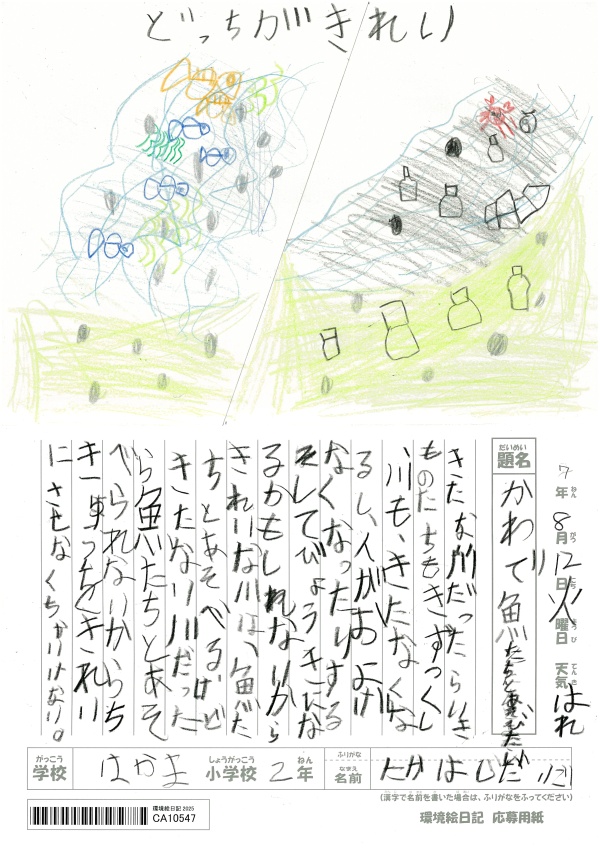 どっちがきれい
7年8月12日火曜日 天気 はれ
ねん がつ にち ようび てんき
だいめい
題名 かわで魚たちと遊びたい
きたな川だったらいき
ものたちもきずつくし
川も、きたなくな
るし、人がおよげ
なくなったりする
そしてびょうきにな
るかもしれないから
きれいな川は、魚た
ちとあそべるけど
きたない川だった
ら魚たちとあそ
べられないからっち
きれい
にさせなくちゃいけない。
がっこう しょうがっこう ねん ふりがな なまえ
学校 はかま 小学校 2年 名前
(漢字で名前を書いた場合は、ふりがなをふってください)
環境絵日記 2025
CA10547
環境絵日記 応募用紙